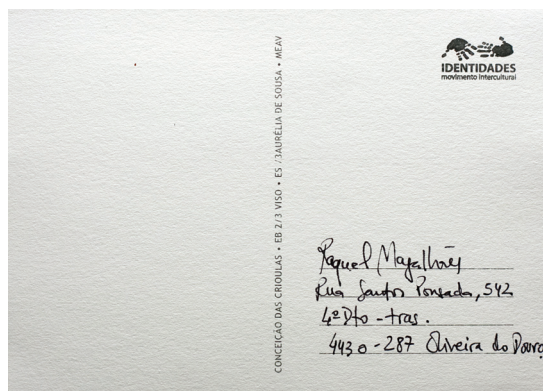 IDENTIDADES
movimento intercultural
CONCEIÇÃO DAS CRIOULAS • EB 2/3 VISO • ES /3AURÉLIA DE SOUSA • MEAV
Raquel Magalhães
Rua Santos Pousada, 542
4º Dto - tras.
4430-287 Oliveira do Douro